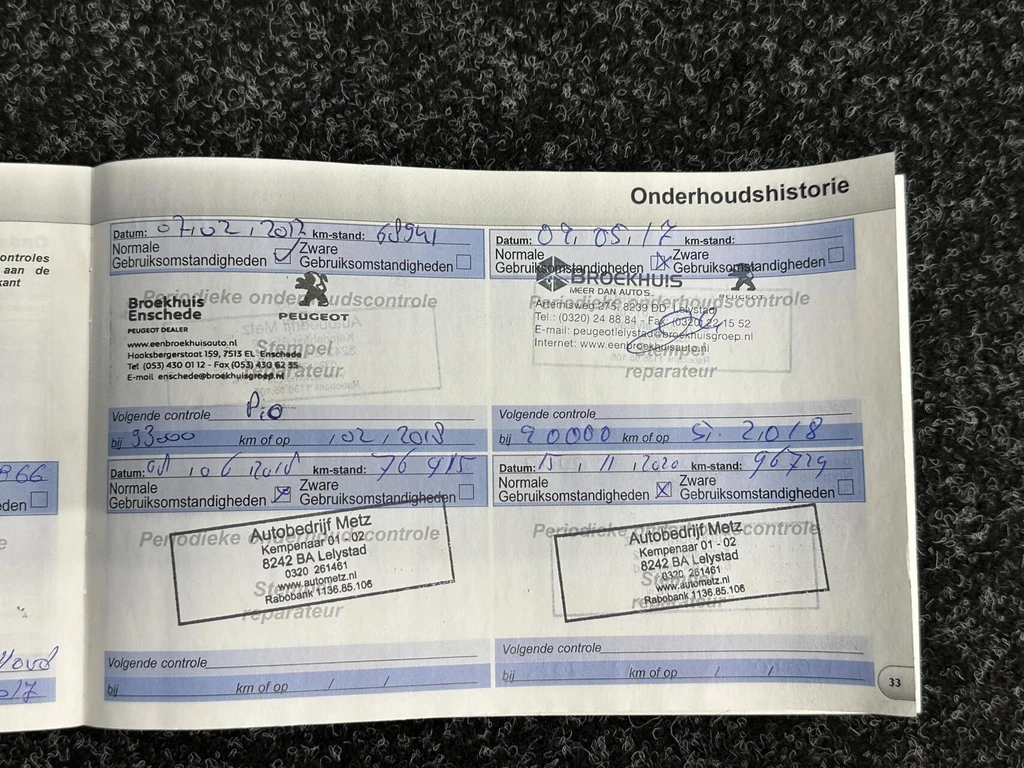 Onderhoudshistorie
ontroles
aan de
kant
866
den
2017
Datum: 07, 02, 2017 km-stand: 68941
Normale
Gebruiksomstandigheden
Zware
Gebruiksomstandigheden
Periodieke onderhoudscontrole
Broekhuis
Enschede
PEUGEOT DEALER
PEUGEOT
www.eenbroekhuisauto.nl
Haaksbergerstraat 159, 7513 EL Enschede
Tel (053) 430 01 12 - Fax (053) 430 62 35
E-mail enschede@broekhuisgroep.nl
Stempel
reparateur
Volgende controle
bij 93000 km of op , 02, 2018
Datum: 09, 05, 17 km-stand:
Normale
Gebruiksomstandigheden
Zware
Gebruiksomstandigheden
Periodieke onderhoudscontrole
BROEKHUIS
MEER DAN AUTO'S.
PEUGEOT
Artemisweg 275, 8239 DD Lelystad
Tel.: (0320) 24 88 84 - Fax (0320) 22 15 52
E-mail: peugeotlelystad@broekhuisgroep.nl
Internet: www.eenbroekhuisauto.nl
Stempel
reparateur
Volgende controle
bij 90000 km of op 5. 2018
Datum: 06 2018 km-stand: 76 415
Normale
Gebruiksomstandigheden
Zware
Gebruiksomstandigheden
Periodieke onderhoudscontrole
Autobedrijf Metz
Kempenaar 01 - 02
8242 BA Lelystad
0320 261461
www.autometz.nl
Rabobank 1136.85.106
Stempel
reparateur
Volgende controle
bij km of op / /
Datum: 15, 11, 2020 km-stand: 96729
Normale
Gebruiksomstandigheden
Zware
Gebruiksomstandigheden
Periodieke onderhoudscontrole
Autobedrijf Metz
Kempenaar 01 - 02
8242 BA Lelystad
0320 261461
www.autometz.nl
Rabobank 1136.85.106
Stempel
reparateur
Volgende controle
bij km of op / /
33